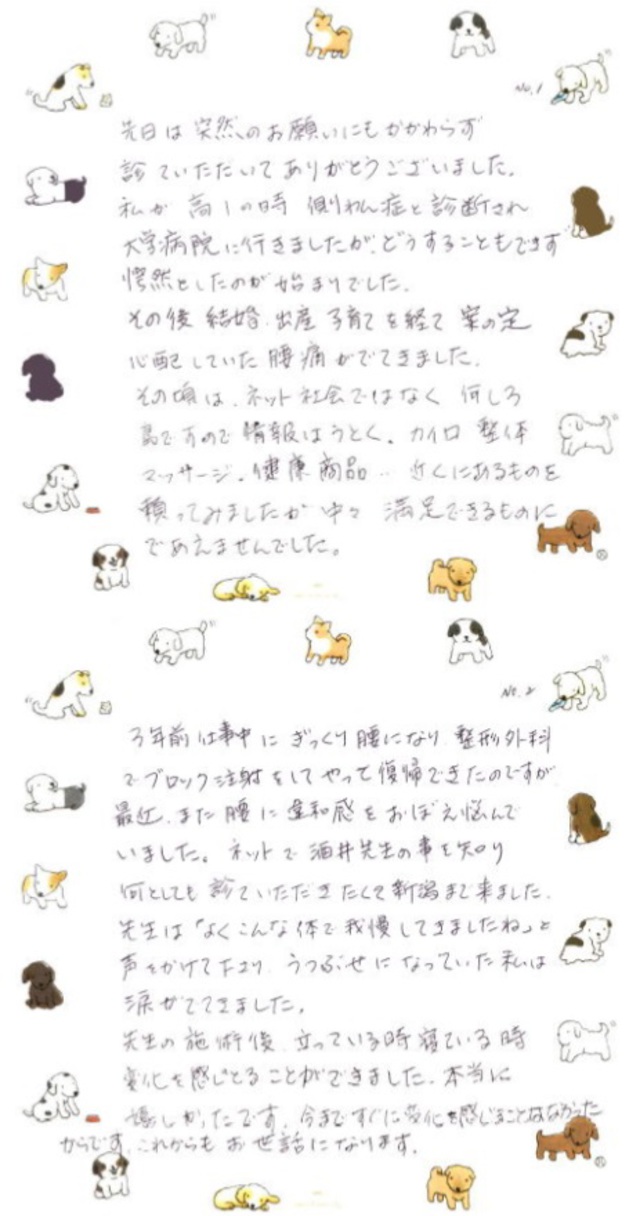 No.1
先日は 突然のお願いにもかかわらず
診ていただいてありがとうございました。
私が 高1の時 側わん症と診断され
大学病院に行きましたが、どうすることもできず
愕然としたのが始まりでした。
その後 結婚、出産 子育てを経て 案の定
心配していた 腰痛がでてきました。
その頃は、ネット社会ではなく 何しろ
島ですので 情報はうとく、カイロ 整体
マッサージ、健康商品… 近くにあるものを
頼ってみましたが 中々 満足できるものに
であえませんでした。
No.2
3年前 仕事中に ぎっくり腰になり、整形外科
でブロック注射をして やって復帰できたのですが、
最近、また腰に違和感をおぼえ悩んで
いました。ネットで 酒井先生の事を知り
何としても 診ていただきたくて新潟まで来ました。
先生は「よくこんな体で我慢してきましたね」と
声をかけて下さり、うつぶせになっていた私は
涙がでてきました。
先生の施術後、立っている時 寝ている時
変化を感じとることができました。本当に
嬉しかったです。今まですぐに変化を感じることはなかった
からです。これからもお世話になります。